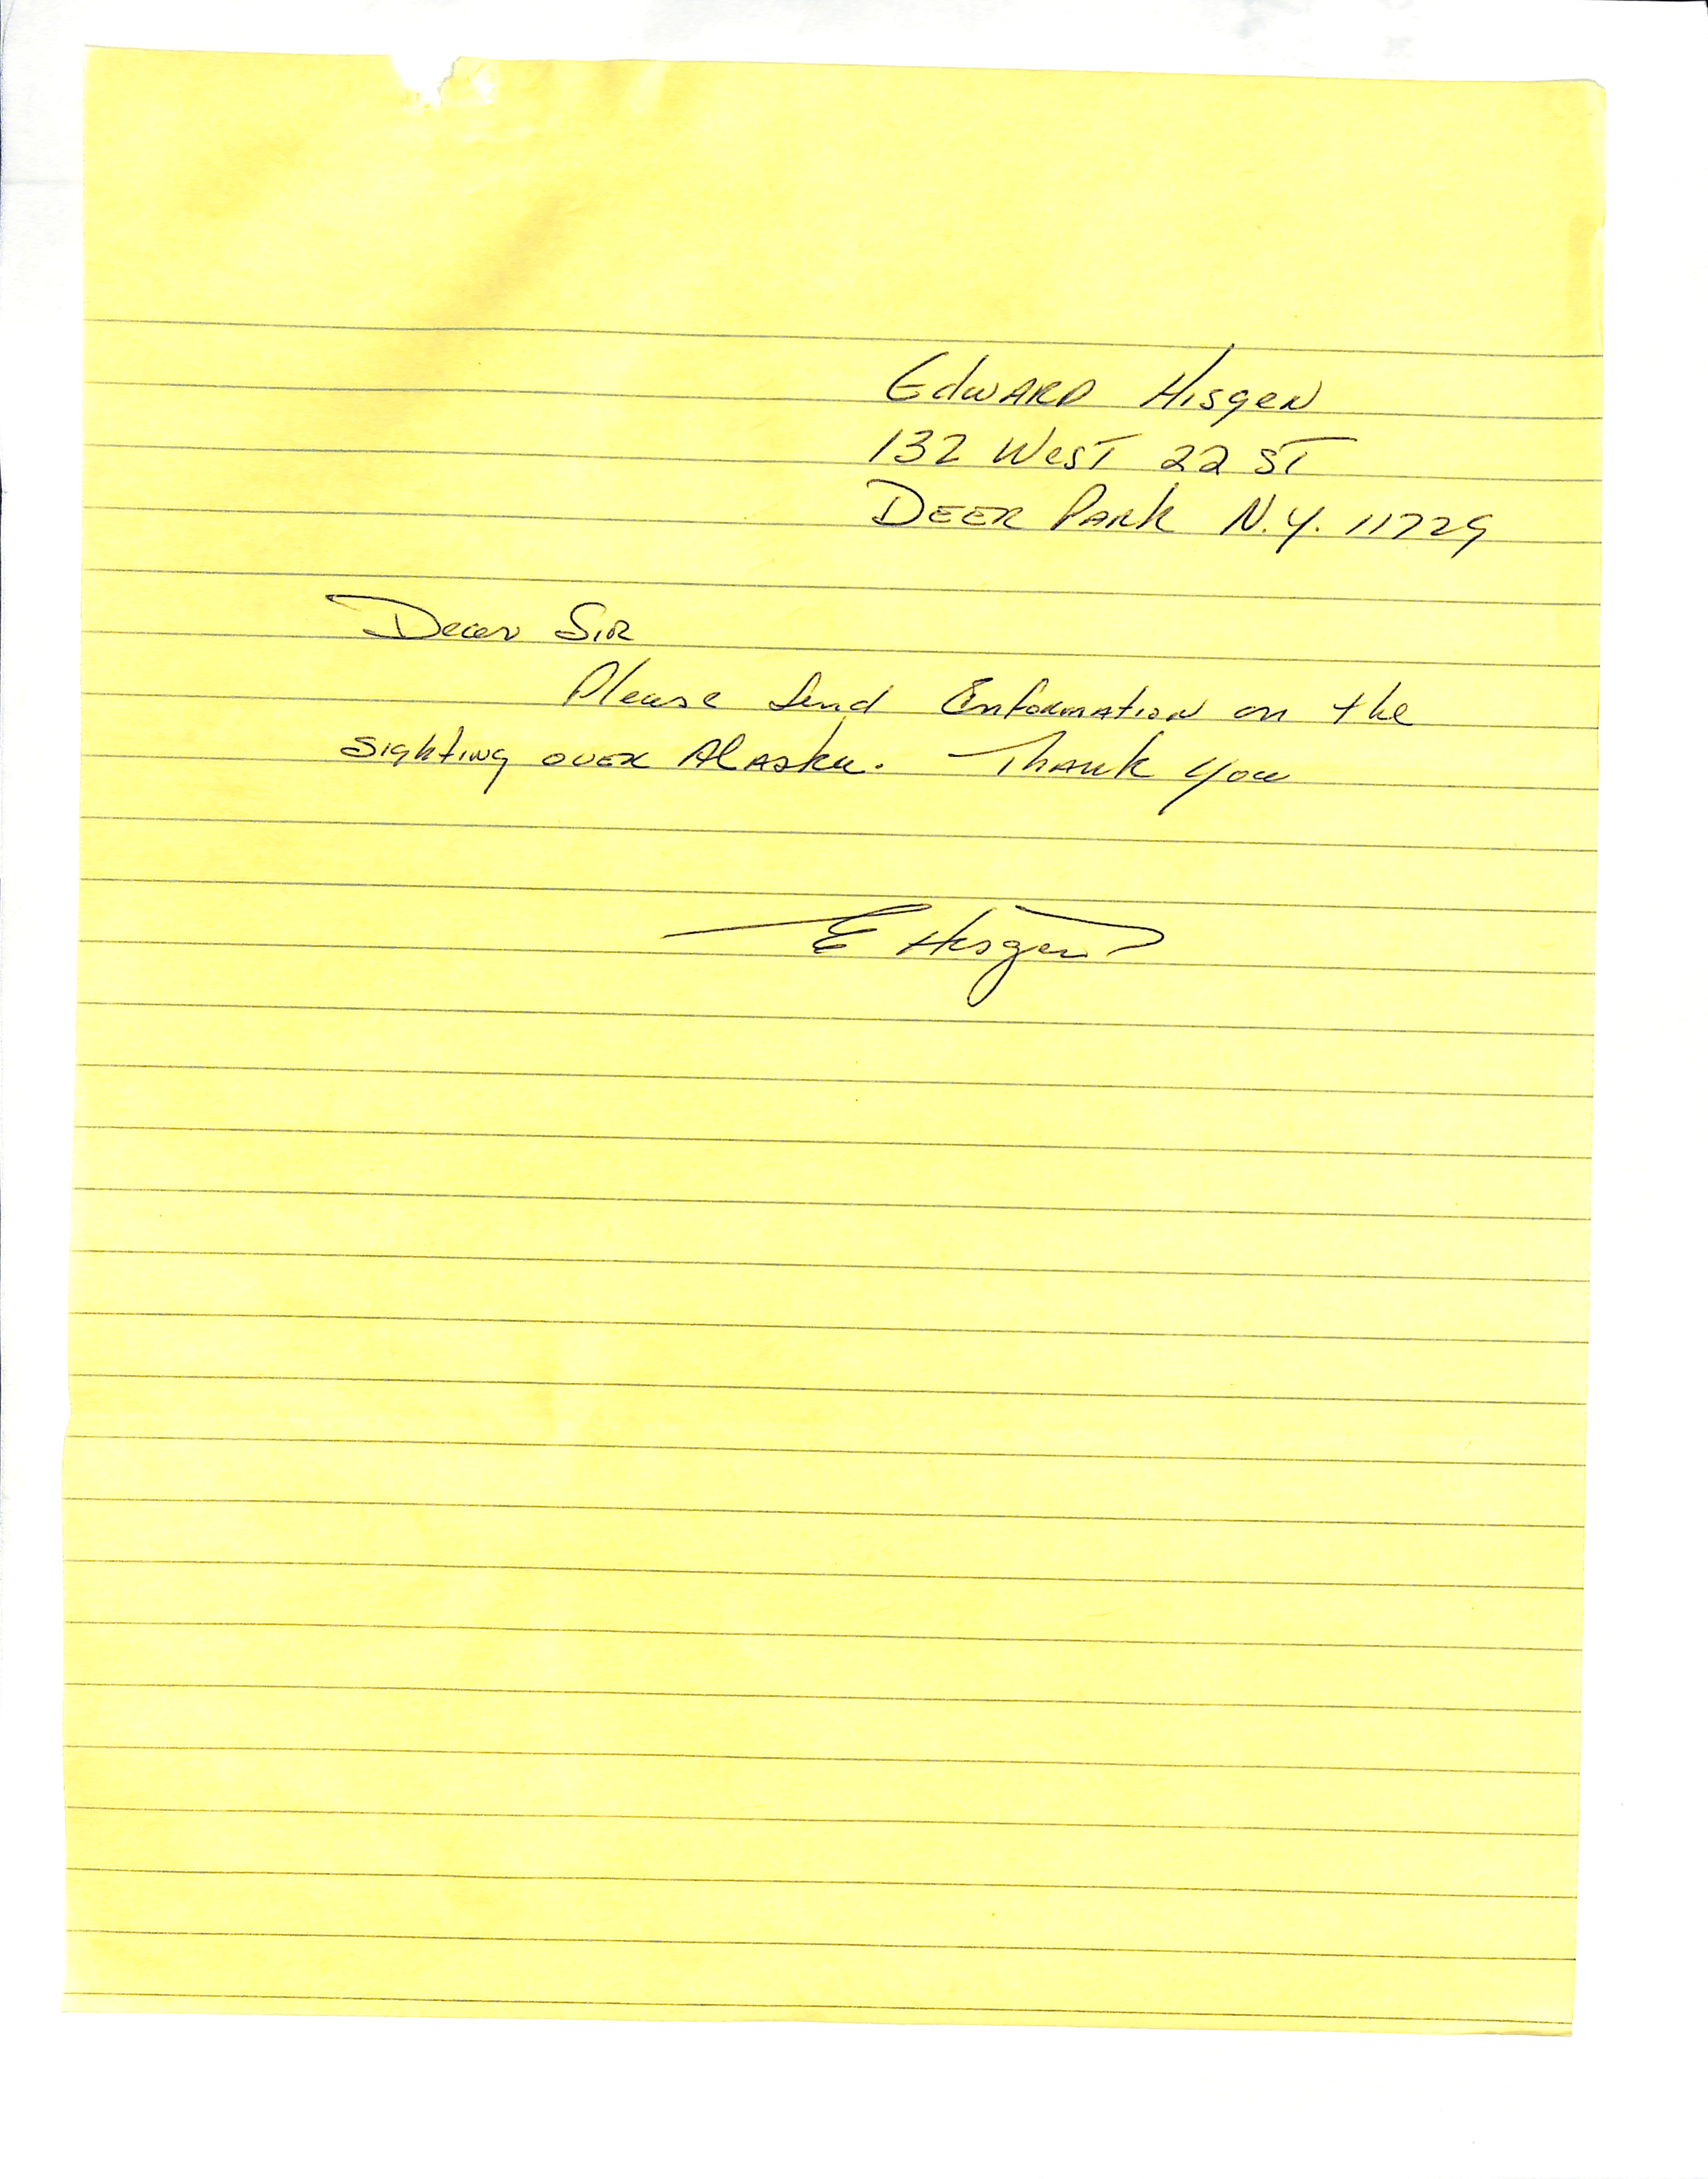 Edward Hisgen
132 West 22 ST
Deer Park N.Y. 11729
Dear Sir
Please Send Information on the
sighting over Alaska. Thank you
E Hisgen